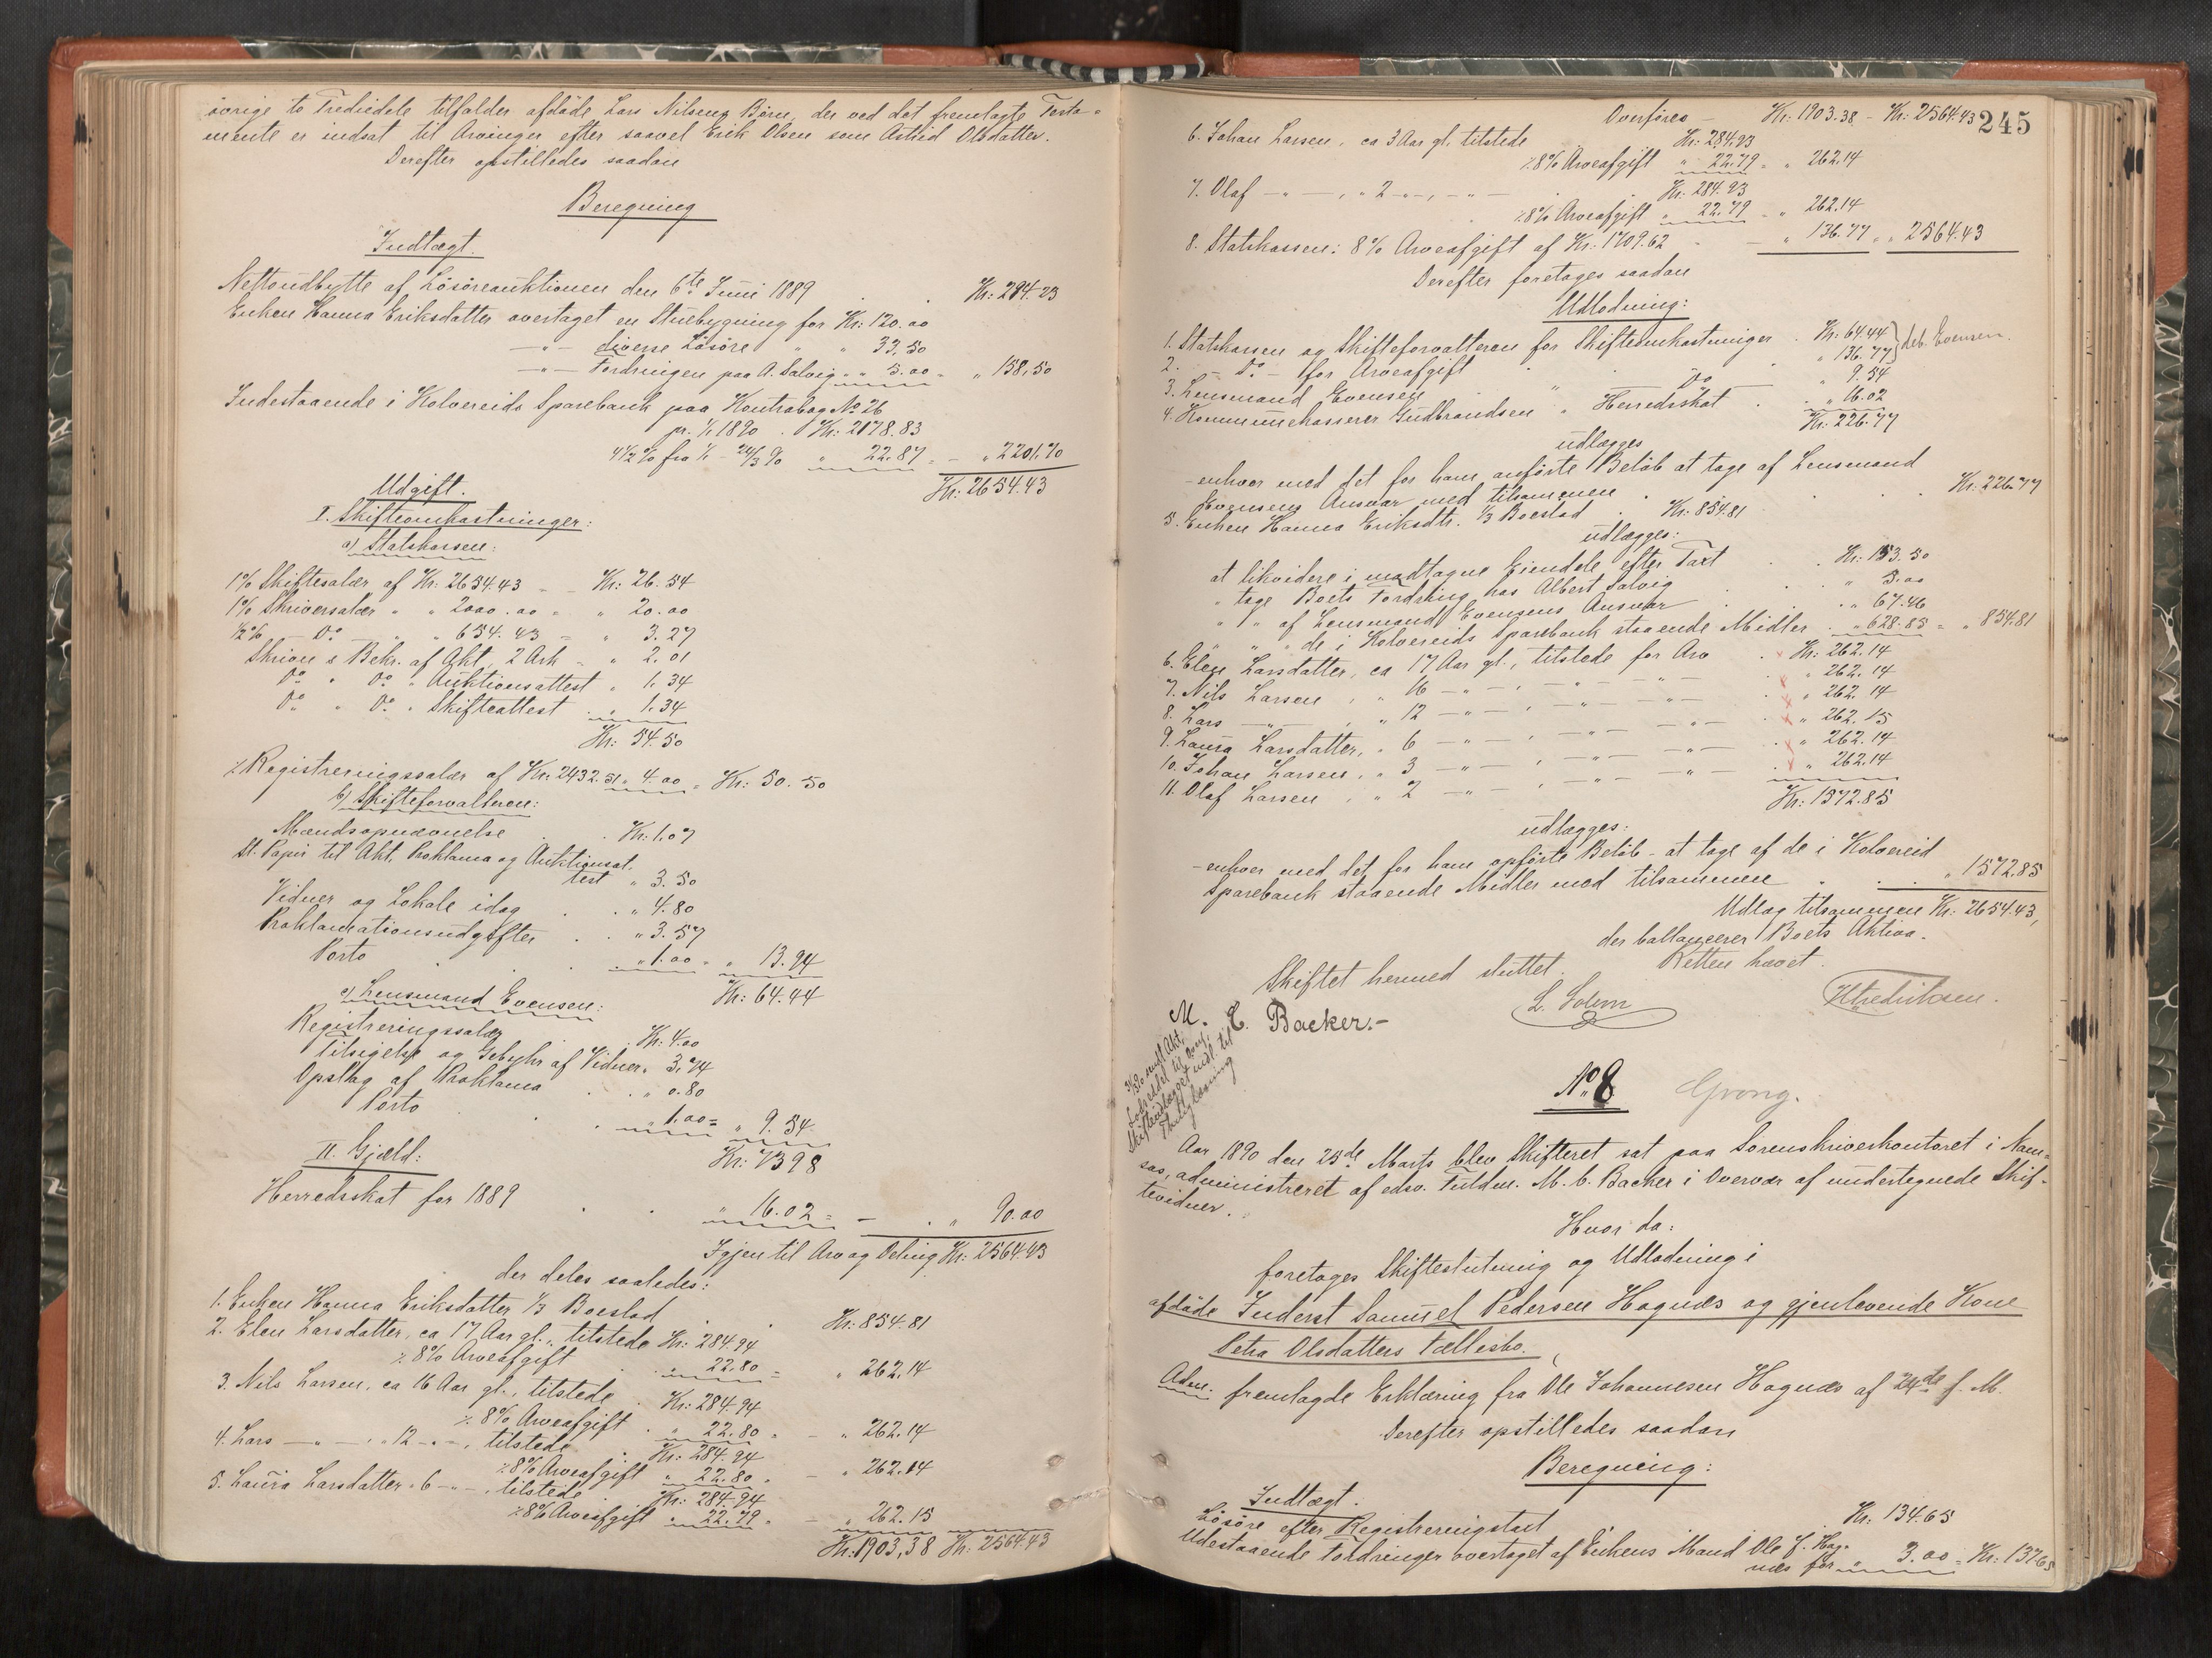 övrige to Trediedele tilfalder afdöde Lars Nilsens Börn, der ved det fremlagte Testa-
mente er indsat til Arvinger efter saavel Erik Olsen som Astrid Olsdatter.
Derefter opstilledes saadan
Beregning
Indtægt.
Nettoudbytte af Lösöreauktionen den 6te Juni 1889 . . Kr: 294.23
Enken Hanna Eriksdatter overtaget en Stuebygning for Kr: 120.00
—"— diverse Lösöre " " 33,50
—"— Fordringen paa A. Salvig " " 5.00 = " 158,50
Indestaaende i Kolvereids Sparebank paa Kontrabog No 26
pr. 1/1 1890 . Kr: 2178.83
4 1/2 % fra 1/1 - 24/3 90 " 22.87 = — " 2201.70
Kr: 2654.43
Udgift.
I. Skifteomkostninger:
a) Statskassen:
1% Skiftesalær af Kr: 2654.43 = - Kr: 26.54
1% Skriversalær " " 2000.00 = " 20.00
1/2 % - Do - " " 654.43 = " 3.27
Skriv. & Bekr. af Akt, 2 Ark = " 2.01
Do " Do " Auktionsattest " 1.34
Do " Do " Skifteattest . " 1.34
Kr: 54.50
÷ Registreringssalær af Kr: 2432.51 " 4.00 = Kr: 50.50
b) Skifteforvalteren:
Mændsopnævnelse . . Kr: 1.07
St. Papir til Akt, Proklama og Auktionsat-
test " 3.50
Vidner og Lokale idag . . " 4.80
Proklamationsudgifter . . " 3.57
Porto . . " 1.00 = " 13.94
Kr: 64.44
c) Lensmand Evensen:
Registreringssalær . Kr: 4.00
Tilsigelse og Gebyhr af Vidner " 3.74
Opslag af Proklama . . " 0.80
Porto . . " 1.00 = " 9.54
Kr: 73.98
II. Gjæld:
Herredsskat for 1889 . . " 16.02 = — . " 90.00
Igjen til Arv og Deling Kr: 2564.43
der deles saaledes:
1. Enken Hanna Eriksdatter 1/3 Boeslod . . Kr: 854.81
2. Elen Larsdatter, ca 17 Aar gl., tilstede Kr: 284.94
÷ 8% Arveafgift . " 22.80 = " 262.14
3. Nils Larsen, ca 16 Aar gl., tilstede . Kr: 284.94
÷ 8% Arveafgift . " 22.80 = - " 262.14
4. Lars —"—, " 12 —"—, tilstede . Kr: 284.94
÷ 8% Arveafgift " 22.80 = - " 262.14
5. Laura Larsdatter " 6 —"—, tilstede Kr: 284.94
÷ 8% Arveafgift " 22.79 = - " 262.15
Kr: 1903,38 Kr: 2564.43
245
Overföres — Kr: 1903.38 - Kr: 2564.43
6. Johan Larsen, ca 3 Aar gl. tilstede Kr: 284.93
÷ 8% Arveafgift " 22.79 = " 262.14
7. Olaf —"—, " 2 —"—, —"— Kr: 284.93
÷ 8% Arveafgift " 22.79 = " 262.14
8. Statskassen: 8% Arveafgift af Kr: 1709.62 — " 136.77 = " 2564.43
Derefter foretages saadan
Udlodning:
1. Statskassen og Skifteforvalteren for Skifteomkostninger . Kr: 64.44 } deb. Evensen.
2. - Do - for Arveafgift . . " 136.77
3. Lensmand Evensen " Do " 9.54
4. Kommunekasserer Gudbrandsen " Herredsskat . . " 16.02
Kr: 226.77
udlægges
- enhver med det for ham anförte Belöb at tage af Lensmand
Evensens Ansvar med tilsammen . . . . Kr: 226.77
5. Enken Hanna Eriksdtr. 1/3 Boeslod . Kr: 854.81
udlægges:
at likvidere i modtagne Eiendele efter Taxt . . Kr: 153.50
" tage Boets Fordring hos Albert Salvig . . " 5.00
" " af Lensmand Evensens Ansvar . . " 67.46
" " " de i Kolvereids Sparebank staaende Midler . " 628.85 = " 854.81
6. Elen Larsdatter, ca 17 Aar gl., tilstede for Arv . Kr: 262.14
7. Nils Larsen, " 16 —"—, —"— —"— . " 262.14
8. Lars —"—, " 12 —"—, —"— —"— . " 262.14
9. Laura Larsdatter, " 6 —"—, —"— —"— . " 262.15
10. Johan Larsen, " 3 —"—, —"— —"— . " 262.14
11. Olaf Larsen, " 2 —"—, —"— —"— . " 262.14
Kr: 1572.85
udlægges:
- enhver med det for ham opförte Belöb - at tage af de i Kolvereid
Sparebank staaende Midler med tilsammen . . . " 1572.85
Udlæg tilsammen Kr: 2654.43,
der ballancerer Boets Aktiva.
Skiftet hermed sluttet. Retten hævet.
M. C. Backer.- L. Solem H. Fredriksen.
No 8 Grong.
Aar 1890 den 25de Marts blev Skifteret sat paa Sorenskriverkontoret i Nam-
sos, administreret af edsv. Fuldm. M. C. Backer i Overvær af undertegnede Skif-
tevidner.
Hvor da:
foretages Skifteslutning og Udlodning i
afdöde Inderst Samuel Pedersen Hagnæs og gjenlevende Kone
Petra Olsdatters Fællesbo.
Adm. fremlagde Erklæring fra Ole Johannesen Hagnæs af 24de f. M.
Derefter opstilledes saadan
Beregning:
Indtægt.
Lösöre efter Registreringstaxt Kr: 134.65
Udestaaende Fordringer overtaget af Enkens Mand Ole J. Hag-
næs for " 3.00 = Kr: 137.65